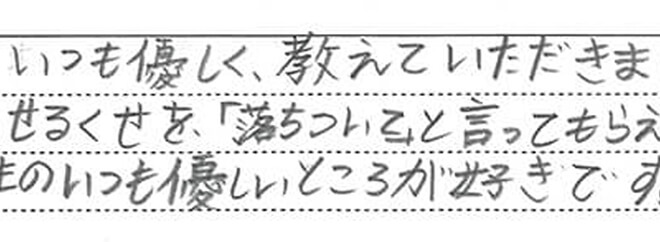 いつも優しく、教えていただきま
せるくせを、「落ちついて」と言ってもらえ
生のいつも優しいところが好きです